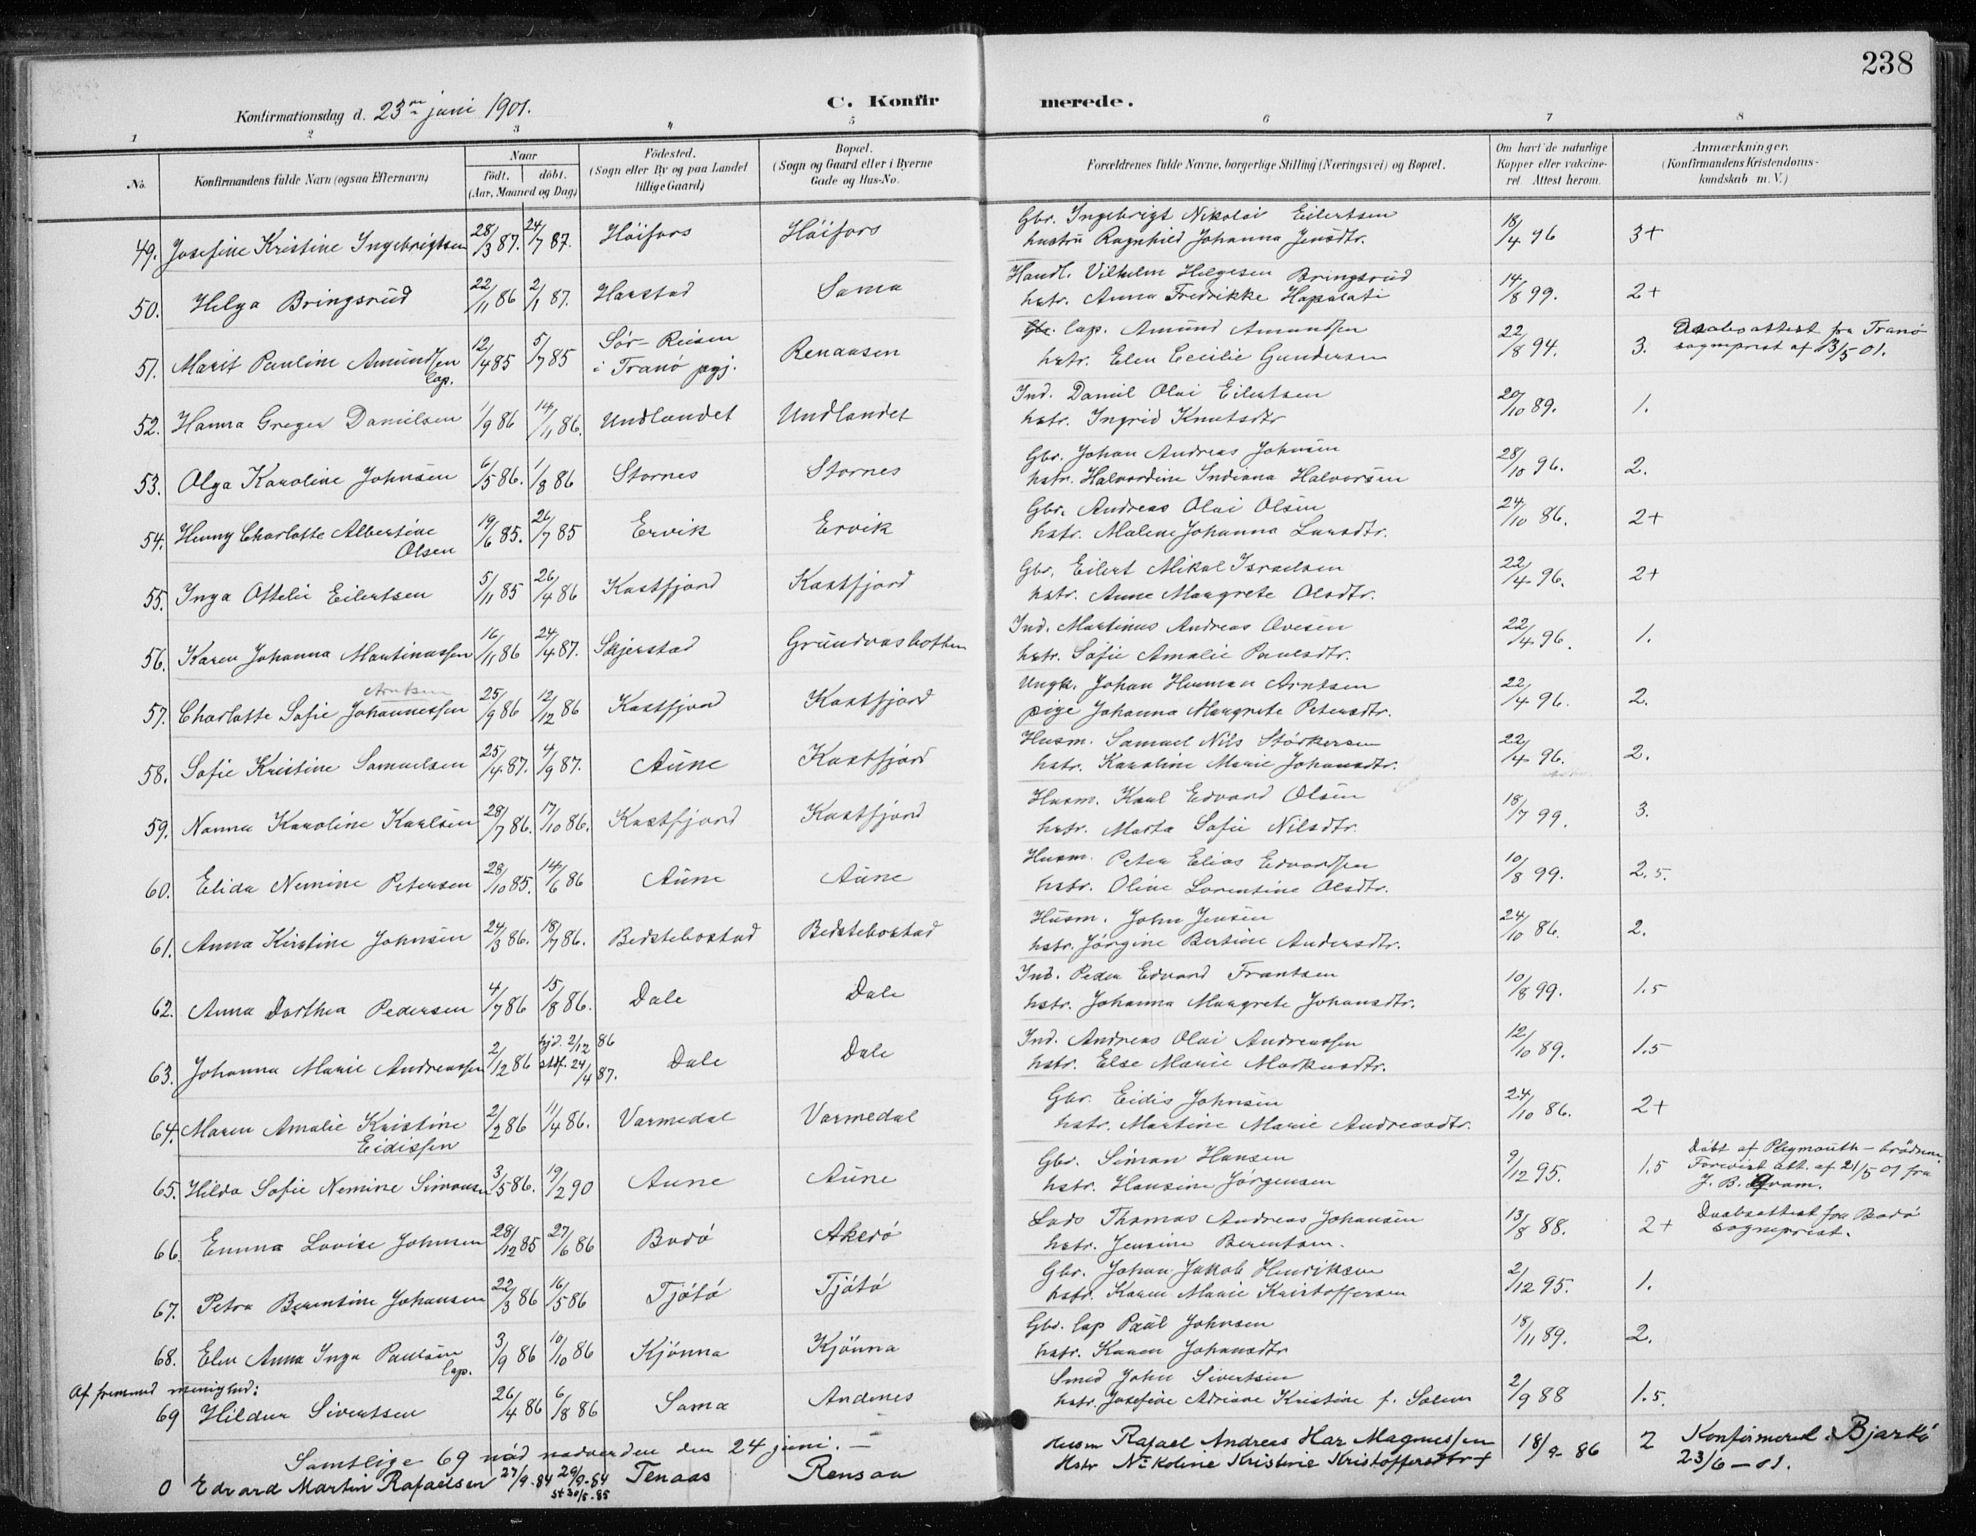 238
Konfirmationsdag d. 23de juni 1901.
C. Konfirmerede.
1 2 3 4 5 6 7 8
No.
Konfirmandens fulde Navn (ogsaa Efternavn)
Naar
født. døbt.
(Aar, Maaned og Dag)
Fødested.
(Sogn eller By og paa Landet
tillige Gaard)
Bopæl.
(Sogn og Gaard eller i Byerne
Gade og Hus-No.
Forældrenes fulde Navne, borgerlige Stilling (Næringsvei) og Bopæl.
Om havt de naturlige
Kopper eller vakcine-
ret. Attest herom.
Anmærkninger.
(Konfirmandens Kristendoms-
kundskab m. V.)
Gbr. Ingebrigt Nikolai Eilertsen
49. Josefine Kristine Ingebrigtsen 28/3 87. 24/7 87. Höifors Höifors hustru Ragnhild Johanna Jensdtr. 18/4 96 3+
Handl. Vilhelm Helgesen Bringsrud
50. Helga Bringsrud 22/11 86 2/1 87. Harstad Sama hstr. Anna Fredrikke Hapalati 14/8 99. 2+
Gbr. Cap. Amund Amundsen
51. Marit Pauline Amundsen 12/4 85 5/7 85 Sør-Reisen i Tranö pgj. Renaasen hstr. Elen Cecilie Gundersen 22/8 94. 3. Daabsattest fra Tranö
Lap. sognprest af 13/5 01.
Ind. Daniel Olai Eilertsen
52. Hanna Gregea Danielsen 1/9 86 14/11 86. Undlandet Undlandet hstr. Ingrid Knutsdtr 20/10 89. 1.
Gbr. Johan Andreas Johnsen
53. Olga Karoline Johnsen 6/5 86. 1/8 86 Stornes Stornes hstr. Halvardine Indiana Halvorsen 28/10 96. 2.
Gbr. Andreas Olai Olsen
54. Henny Charlotte Albertine 19/6 85. 26/7 85 Ervik Ervik hstr. Malene Johanna Larsdtr. 24/10 86. 2+
Olsen
Gbr. Eilert Mikal Israelsen
55. Inga Ottelie Eilertsen 5/11 85 26/4 86 Kastfjord Kastfjord hstr. Anne Margrete Olsdtr. 22/4 96. 2+
Ind. Martinus Andreas Ovesen
56. Karen Johanna Martinussen 16/11 86 24/4 87. Skjerstad Grundvasbotten hstr. Sofie Amalie Paulsdtr. 22/4 96. 1.
Arntsen
Ungk. Johan Herman Arntsen
57. Charlotte Sofie Johannessen 25/9 86 12/12 86 Kastfjord Kastfjord pige Johanna Margrete Petersdtr. 22/4 96. 2.
Husm. Samuel Nils Störkersen
58. Sofie Kristine Samuelsen 25/4 87. 4/9 87. Aune Kastfjord hstr. Karoline Marie Johansdtr. 22/4 96. 2.
Husm. Karl Edvard Olsen
59. Nanna Karoline Karlsen 28/7 86. 17/10 86. Kastfjord Kastfjord hstr. Marta Sofie Nilsdtr. 18/7 99. 3.
Husm. Peter Elias Edvardsen
60. Elida Nemine Petersen 28/10 85. 14/6 86 Aune Aune hstr. Oline Lorentine Olsdtr. 10/8 99. 2.5.
Husm. John Jensen
61. Anna Kirstine Johnsen 24/3 86. 18/7 86. Bedstebostad Bedstebostad hstr. Jörgine Bertine Andersdtr. 24/10 86. 2.
Ind. Peder Edvard Frantsen
62. Anna Dorthea Pedersen 4/7 86 15/8 86. Dale Dale hstr. Johanna Margrete Johansdtr. 10/8 99. 1.5
Ind. Andreas Olai Andreassen
63. Johanna Marie Andreassen 2/12 86 hjd. 2/12 86 stdf. 24/4 87. Dale Dale hstr. Else Marie Markusdtr. 12/10 89. 1.5
Gbr. Eidis Johnsen
64. Maren Amalie Kristine 2/2 86 11/4 86. Varmedal Varmedal hstr. Martine Marie Andreasdtr. 24/10 86. 2+
Eidissen
Gbr. Simon Hansen
65. Hilda Sofie Nemine Simonsen 3/5 86. 19/2 90 Aune Aune hstr. Hansine Jörgensen 9/12 95. 1.5 Döbt af Plymouth-brödrene
Forevist att. af 21/5 01 fra
J. B.
Lods Thomas Andreas Johansen
66. Emma Lovise Johnsen 28/12 85 27/6 86 Bodö Akerö hstr. Jensine Berentsen. 13/8 88. 2+ Daabsattest fra Bodö
sognprest.
Gbr. Johan Jakob Henriksen
67. Petra Berentine Johansen 22/3 86 16/5 86 Tjötö Tjötö hstr. Karen Marie Kristoffersen 2/12 95. 1.
Gbr. Lap Paul Johnsen
68. Elen Anna Inga Paulsen 3/9 86 10/10 86 Kjönna Kjönna hstr. Karen Johansdtr 18/11 89. 2.
Lap.
Af fremmed menighed:
Smed John Sivertsen
69 Hildur Sivertsen 26/4 86 6/8 86 Sama Andenes hstr. Josefine Adriane Kristine f. Solem 2/9 88 1.5.
Samtlige 69 nød nadverden den 24 juni. —
Husm Rafael Andreas Har Magnussen 18/9 - 86 2 Konfirmered i Bjarkö
0 Edvard Martin Rafaelsen 27/9.84 29/9-84 st 30/5.85 Tenaas Rensaa Hstr Nikoline Kristine Kristoffersdtr 23/6 - 01.